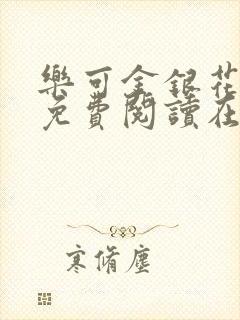 樂可金銀花
免費閱讀在
寒脩塵